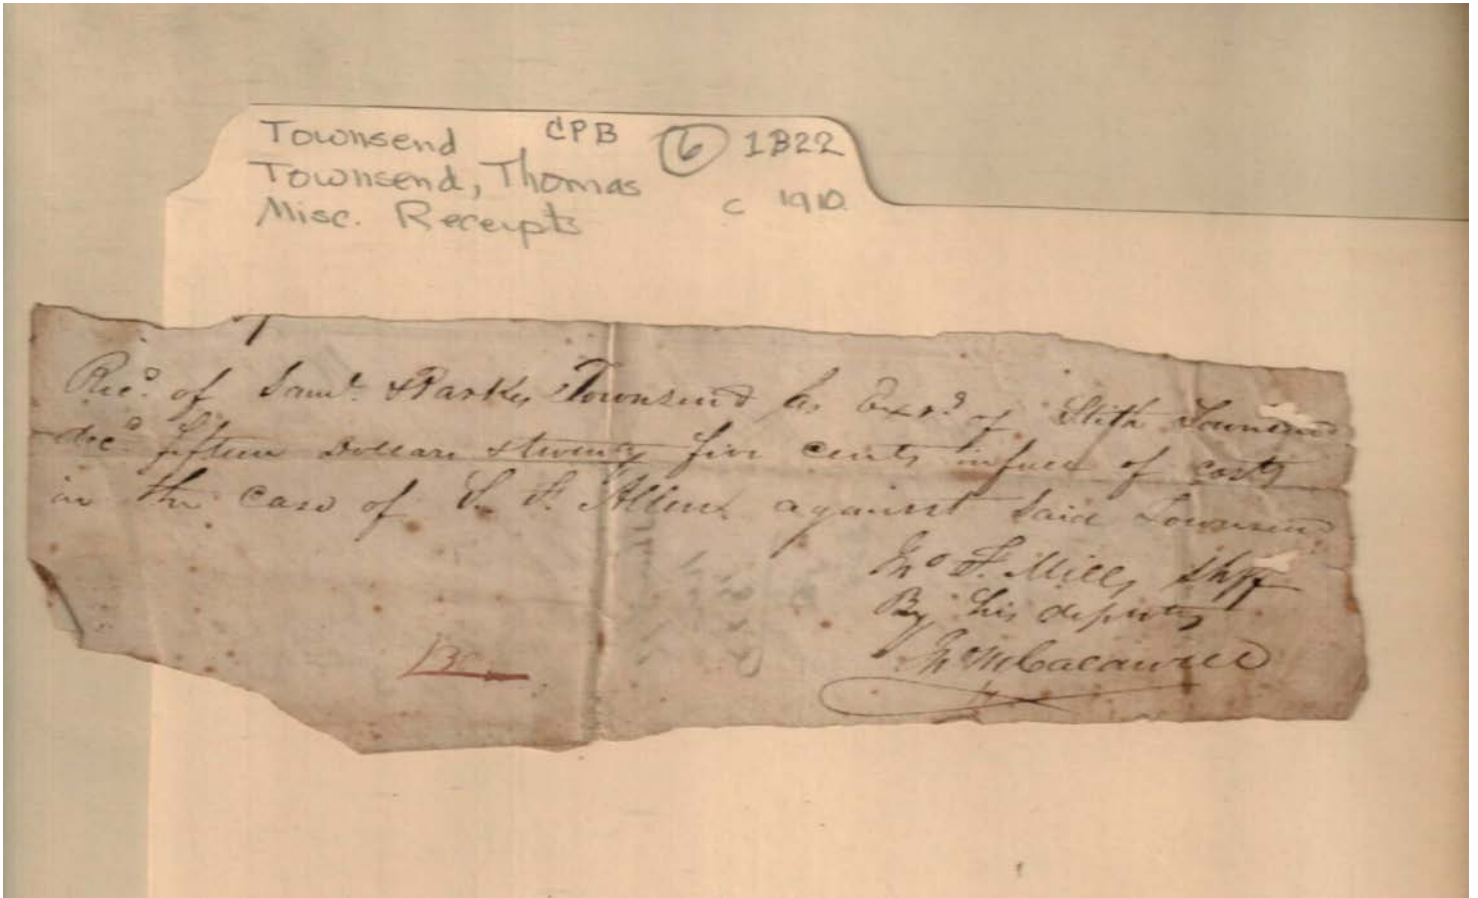 Townsend CPB 6 1822
Townsend, Thomas
Misc. Receipts c 1910
Rec.d of Saml. & Parks Townsend as Exrs. of Stith Townsend
dec.d fifteen Dollars & twenty five cents in full of costs
in the case of S. F. Allen against Said Townsend
Jno. F. Mills Shff
By his deputy